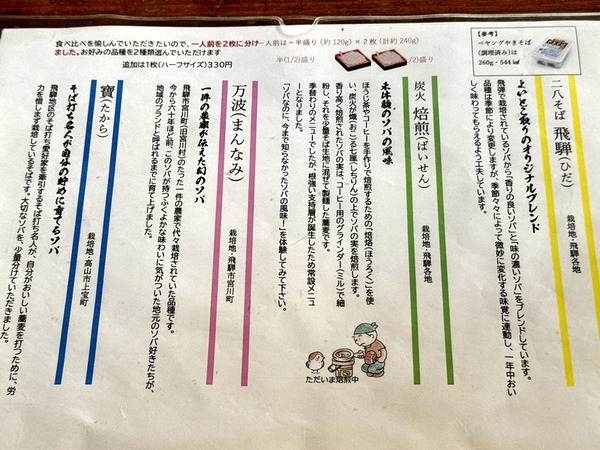 食べ比べを愉しんでいただきたいので、一人前を2枚に分け一人前は＝半盛り（約120g）×２枚（計約240g）
ました。お好みの品種を2種類選んでいただけます
追加は1枚（ハーフサイズ）330円
半(1/2)盛り
/2)盛り
【参考】
ペヤングやきそば
（調理済み）は
260g・544㎉
二八そば 飛騨（ひだ）
栽培地・飛騨各地
よいとこ取りのオリジナルブレンド
飛騨で栽培されているソバから「香りの良いソバ」と「味の濃いソバ」をブレンドしています。
品種は季節により変更しますが、季節々々によって微妙に変化する味覚に連動し、一年中おい
しく味わってもらえるよう工夫しています。
炭火 焙煎（ばいせん）
栽培地・飛騨各地
未体験のソバの風味
ほうじ茶やコーヒーを手作りで焙煎するための「焙烙（ほうろく）」を使
い、炭火が熾（おこ）る七厘（しちりん）の上でソバの実を焙煎します。
香り高く焙煎されたソバの実は、コーヒー用のグラインダー（ミル）で細
粉し、それを多めにそば生地に混ぜて製麺した蕎麦です。
季替わりのメニューでしたが、根強い支持層が誕生したため常設メニュ
ーとなりました。
「ソバなのに、今まで知らなかったソバの風味！」を体験してみて下さい。
ただいま焙煎中
万波（まんなみ）
栽培地・飛騨市宮川町
一軒の農家が伝えた幻のソバ
飛騨市宮川町（旧宮川村）のたった一件の農家で代々栽培されていた品種です。
今から六十年ほど前、このソバが持つふくよかな味わいに気がついた地元のソバ好きたちが、
地域のブランドと呼ばれるまでに育て上げました。
寶（たから）
栽培地・高山市上宝町
そば打ち名人が自分の為に育てるソバ
飛騨地区のそば打ち愛好家を牽引するそば打ち名人が、自分がおいしい蕎麦を打つために、労
力を惜しまず栽培しているそばです。大切なソバを、少量分けていただきました。